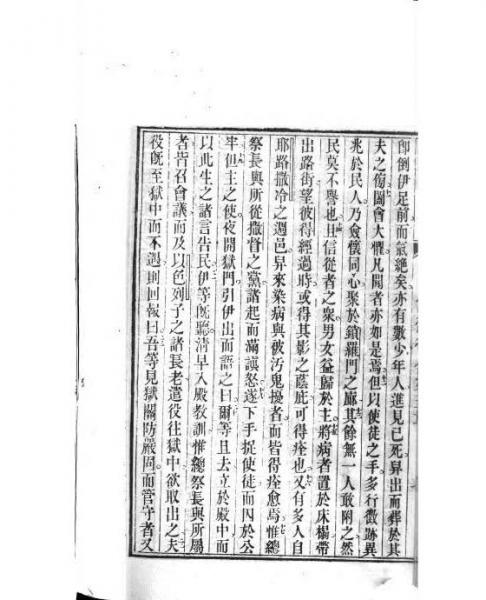 卽倒伊足前而氣絶矣亦有數少年人進見已死舁出而葬於其
夫之傷圖會大懼凡聞者亦如是焉但以使徒之手多行徵跡異
兆於民人乃僉懷同心聚於鎖羅門之廊其餘無一人敢附之然
民莫不譽也且信從者之衆男女益歸於主將病者置於床榻帶
出路街望彼得經過時或得其影之蔭庇可得痊也又有多人自
耶路撒冷之週邑舁來染病與被汚鬼擾者而皆得痊愈焉惟總
祭長與所從撒督之黨諸起而滿讓怒遂下手捉使徒而囚於公
牢但主之使夜開獄門引伊出而語之曰爾等且去立於殿中而
以此生之諸言吿民伊等旣聽清早入殿敎訓惟總祭長與所屬
者皆召會議而及以色列子之諸長老遣役往獄中欲取出之夫
役旣至獄中而不遇則回報曰吾等見獄關防嚴周而管守者又